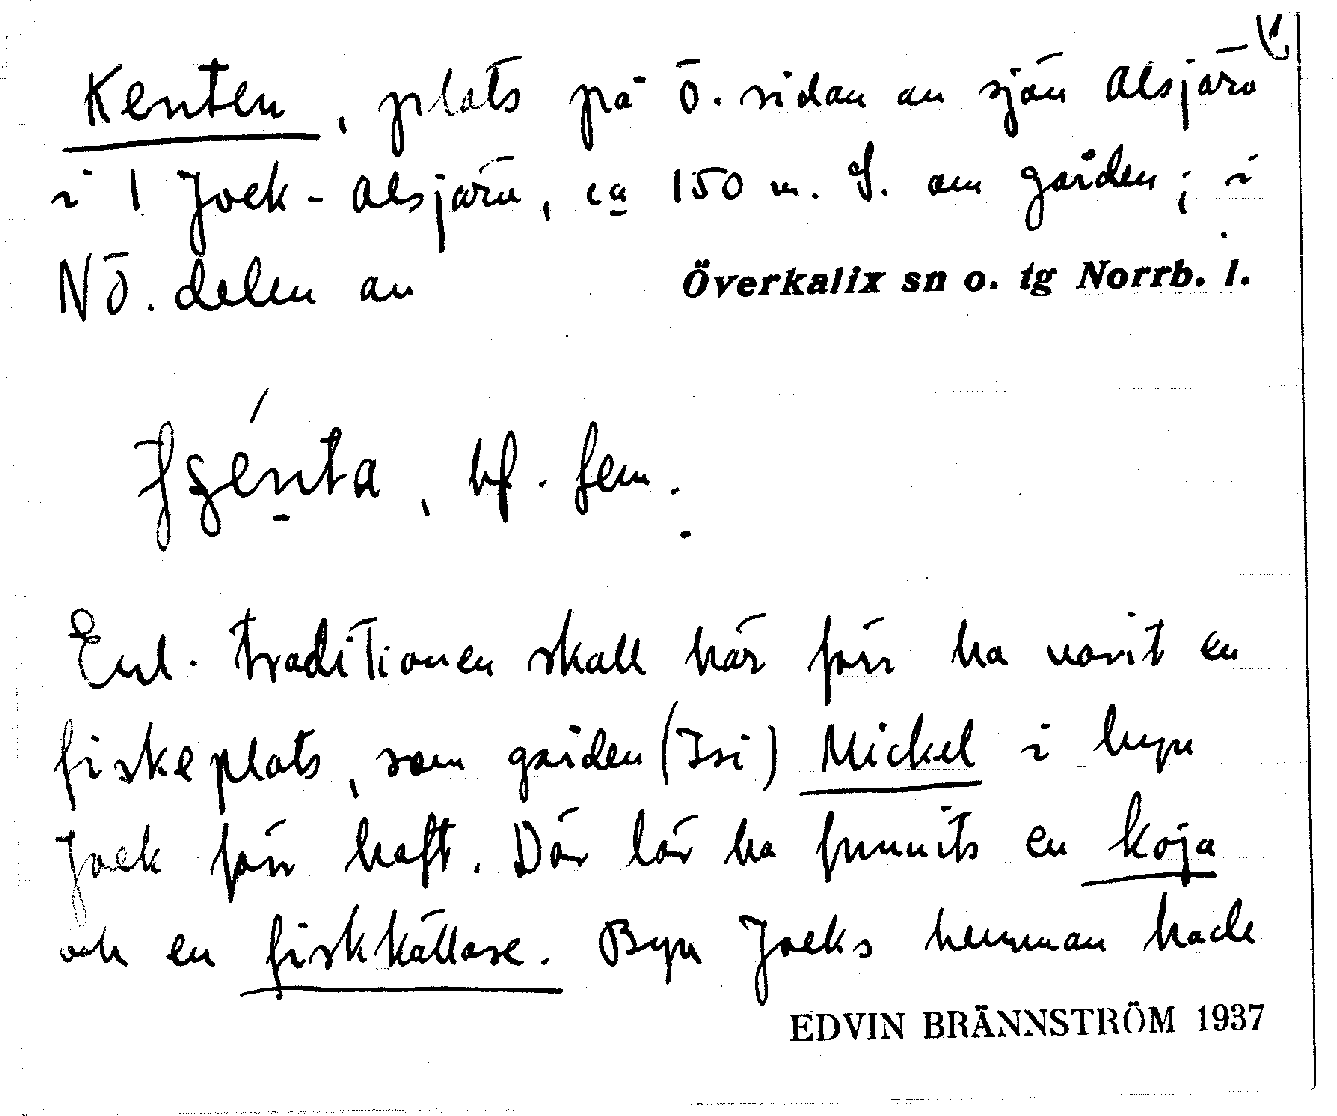 Kenten, plats på Ö. sidan av sjön Alsjärv
i 1 Jock-Alsjärv, ca 150 m. S. om gården; i
NÖ. delen av Överkalix sn o. tg Norrb. l.
bf. fem.
Enl. traditionen skall här förr ha varit en
fiskeplats, som gården (Isi) Mickel i byn
Jock förr haft. Där lär ha funnits en koja
och en fiskkällare. Byn Jocks hemman hade
EDVIN BRÄNNSTRÖM 1937